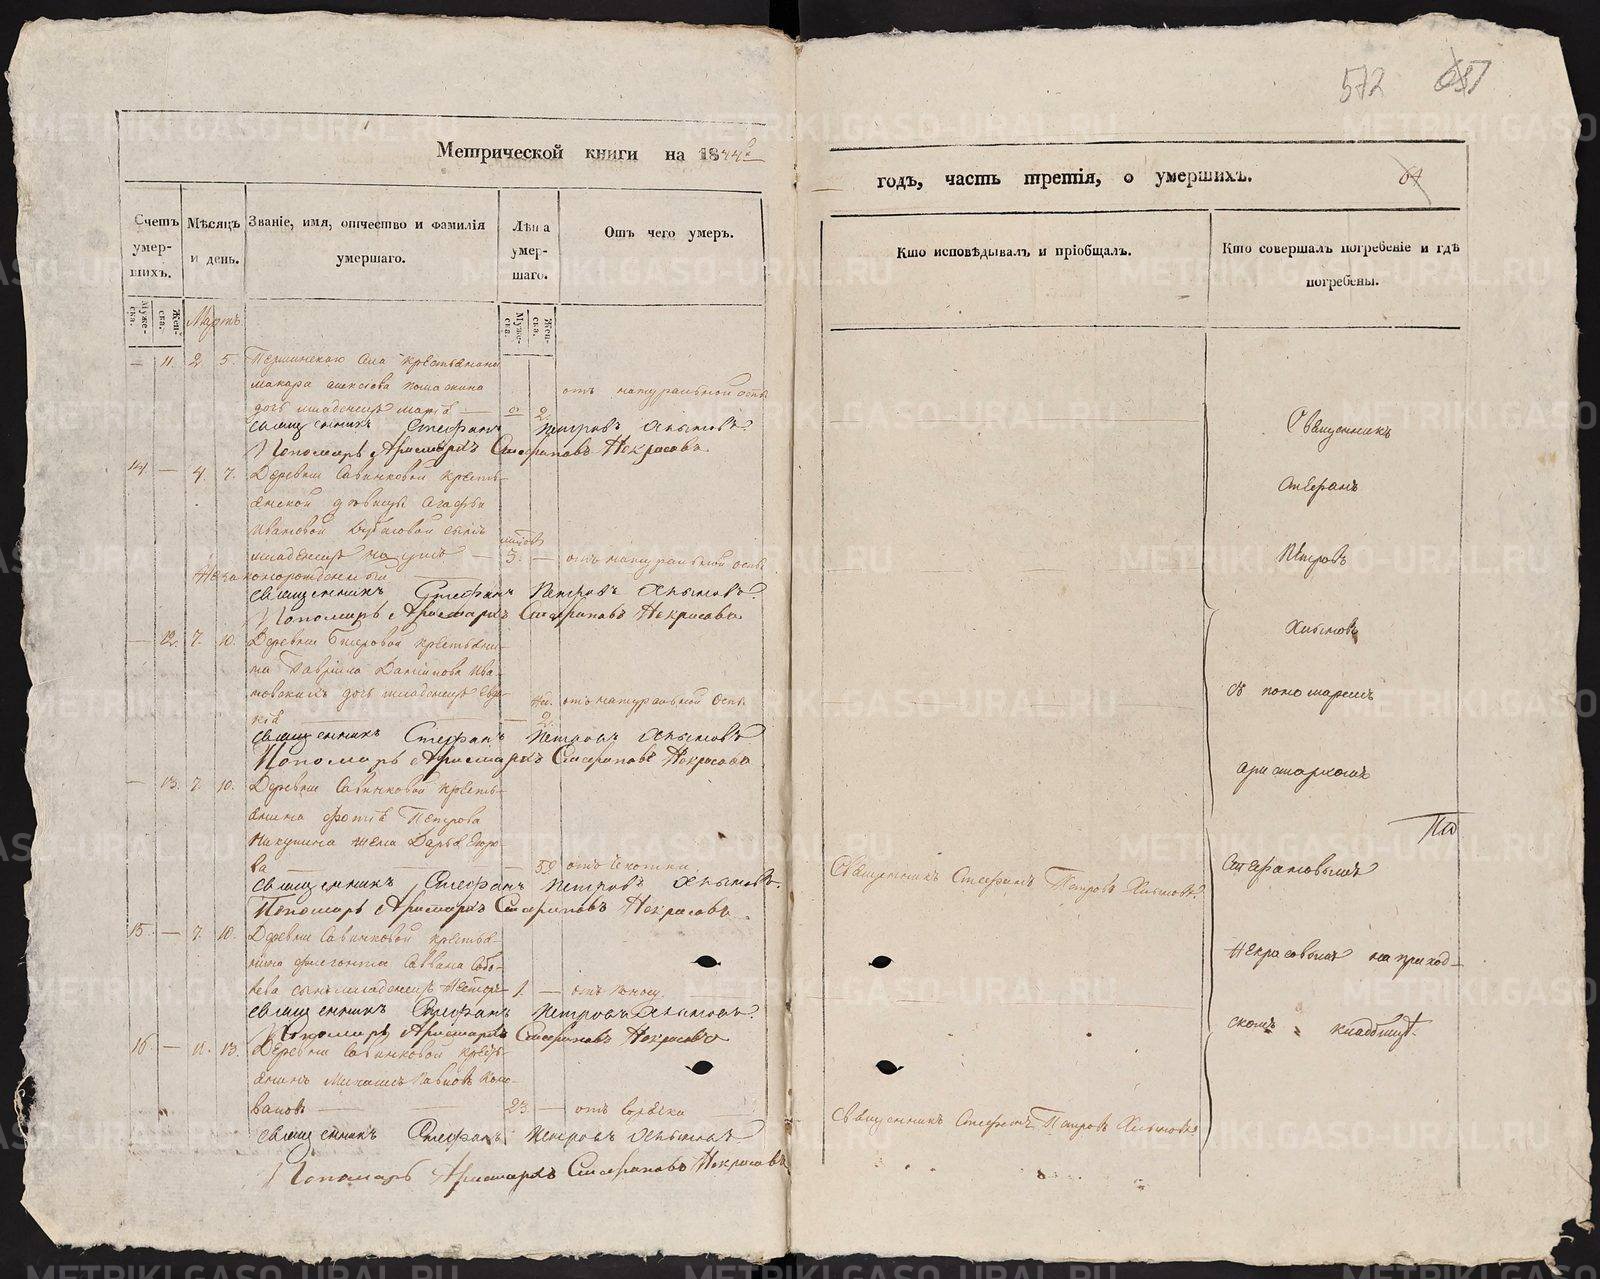 572
Метрической книги на 1844й
годъ, часть третія, о умершихъ.
64
Счетъ умер-шихъ.
Мѣсяцъ и день.
Званіе, имя, отчество и фамилія умершаго.
Лѣта умер-шаго.
Отъ чего умеръ.
Кто исповѣдывалъ и пріобщалъ.
Кто совершалъ погребеніе и гдѣ погребены.
Муже-ска.
Жен-ска.
Мартъ
Муже-ска.
Жен-ска.
— 11 2 5. села крестьянина
макара алексѣева
дочь младенецъ марія — 2. отъ натуральной оспы
священникъ Стефанъ Петровъ Хлыновъ.
Пономарь Аристархъ Стефановъ Некрасовъ
14 — 4 7. Деревни Савинковой кресть-
янской дѣвицы Агафьи
Ивановой сынъ
младенецъ — 3. — отъ натуральной оспы
Незаконорожденный
священникъ Стефанъ Петровъ Хлыновъ.
Пономарь Аристархъ Стефановъ Некрасовъ
— 12. 7. 10. Деревни крестьяни-
на Гаврила Данилова Ива-
новскихъ дочь младенецъ Евдо-
кія — 2. отъ натуральной оспы
священникъ Стефанъ Петровъ Хлыновъ
Пономарь Аристархъ Стефановъ Некрасовъ
— 13. 7 10. Деревни Савинковой кресть-
янина Фотія Петрова
Никулина жена Дарья Егоро-
ва — 59 отъ чахотки
Священникъ Стефанъ Петровъ Хлыновъ.
священникъ Стефанъ Петровъ Хлыновъ.
Пономарь Аристархъ Стефановъ Некрасовъ
15 — 7. 10. Деревни Савинковой крестья-
нина Саввина
сынъ младенецъ 1. — отъ поносу
священникъ Стефанъ Петровъ Хлыновъ.
Пономарь Аристархъ Стефановъ Некрасовъ
16 — 11. 13. Деревни Савинковой кресть-
янинъ Михаилъ Павловъ Коно-
валовъ — 23 — отъ
Священникъ Стефанъ Петровъ Хлыновъ
священникъ Стефанъ Петровъ Хлыновъ
Пономарь Аристархъ Стефановъ Некрасовъ
Священникъ
Стефанъ
Петровъ
Хлыновъ
съ пономаремъ
аристархомъ
Стефановымъ
Некрасовымъ на приход-
скомъ кладбищѣ.
METRIKI.GASO-URAL.RU